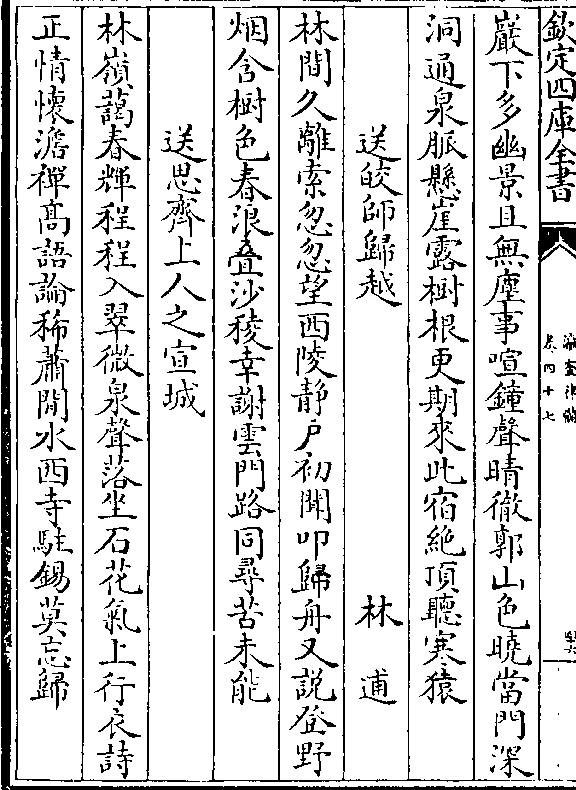 欽定四庫全書
瀛奎律髓
卷四十七
巖下多幽景且無塵事喧鐘聲晴徹郭山色曉當門深
洞通泉脈懸崖露樹根更期來此宿絶頂聽寒猿
送皎師歸越 林逋
林間久離索忽忽望西陵静户初聞叩歸舟又説登野
烟含樹色春浪叠沙稜幸謝雲門路同尋苦未能
送思齊上人之宣城
林嶺藹春輝程程入翠微泉聲落坐石花氣上行衣詩
正情懷澹禪髙語論稀蕭閒水西寺駐錫莫忘歸